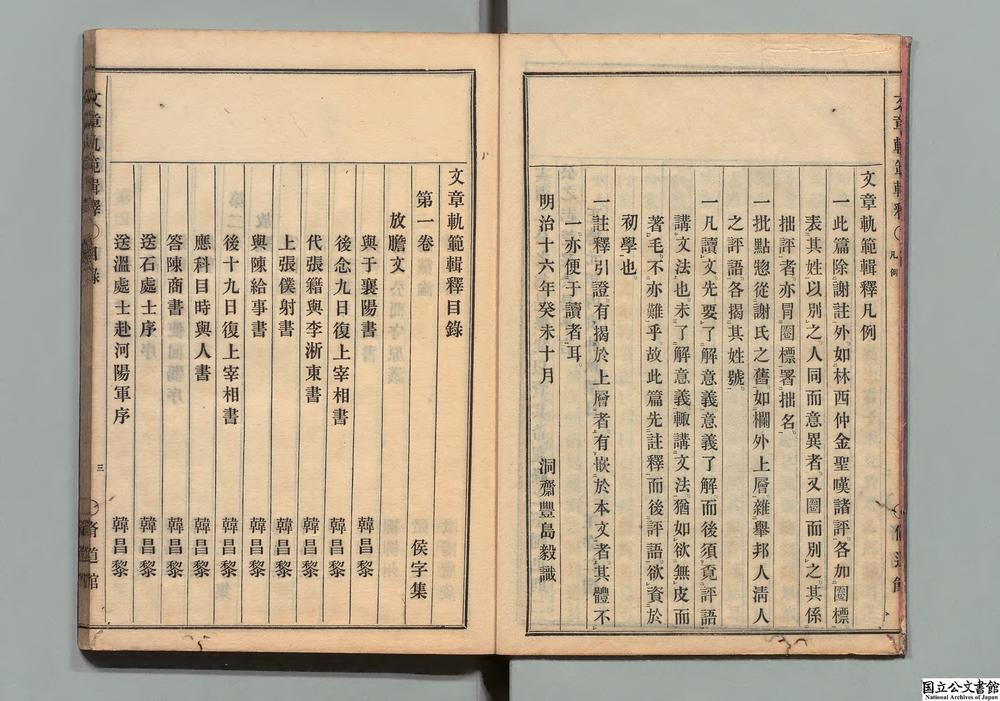 文章軌範輯釋凡例
一此篇除謝註外如林西仲金聖嘆諸評各加圈標
表其姓以別之人同而意異者又圈而別之其係
拙評者亦冐圈標署拙名
一批點惣從謝氏之舊如欄外上層雜舉邦人淸人
之評語各揭其姓號
一凡讀文先要了解意義意義了解而後須覔評語
講文法也未了解意義輙講文法猶如欲無皮而
著毛不亦難乎故此篇先註釋而後評語欲資於
初學也
一註釋引證有揭於上層者有嵌於本文者其體不
一亦便于讀者耳
明治十六年癸未十月 洞齋豐島毅識
文章軌範輯釋目錄
第一卷 侯字集
放膽文
與于襄陽書 韓昌黎
後念九日復上宰相書 韓昌黎
代張籍與李浙東書 韓昌黎
上張僕射書 韓昌黎
與陳給事書 韓昌黎
後十九日復上宰相書 韓昌黎
應科目時與人書 韓昌黎
答陳商書 韓昌黎
送石處士序 韓昌黎
送溫處士赴河陽軍序 韓昌黎
文章軌範輯釋 目錄 三
国立公文書館
National Archives of Japan